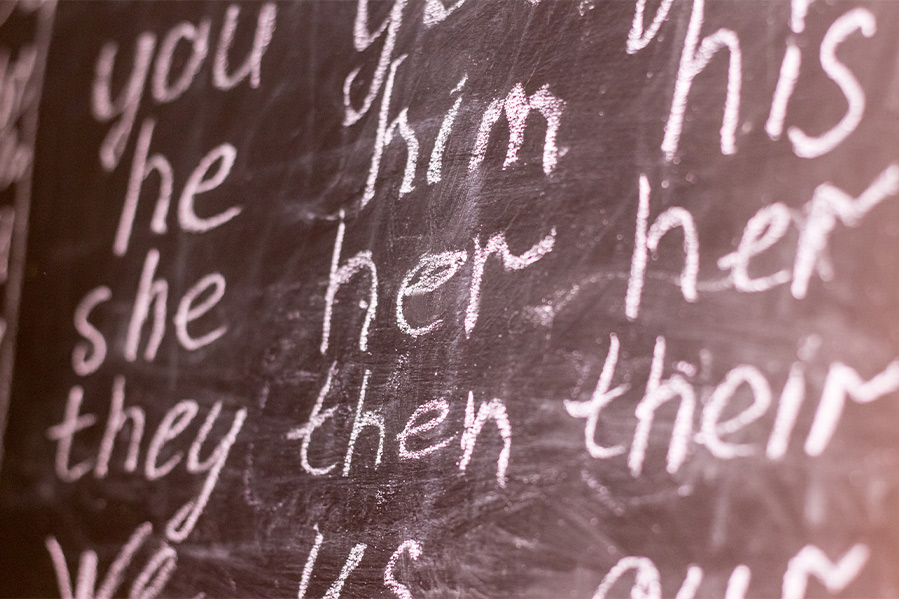 you his
he him her
she her their
they then our
we us